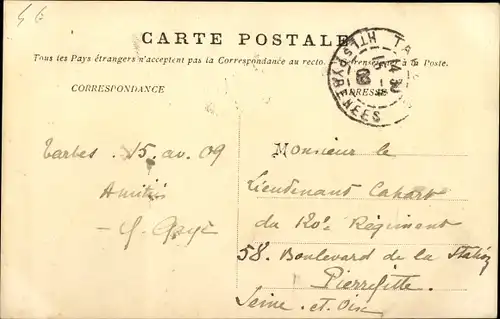 46
CARTE POSTALE
Tous les Pays étrangers n'acceptent pas la Correspondance au recto. à la Poste.
CORRESPONDANCE
TA
14 30
15 -4
09
HTES PYRENEES
Tarbes 15 av. 09
Amitiés
Monsieur le
Lieutenant
du 120e Régiment
58. Boulevard de la Station
Pierrefitte
Seine et Oise